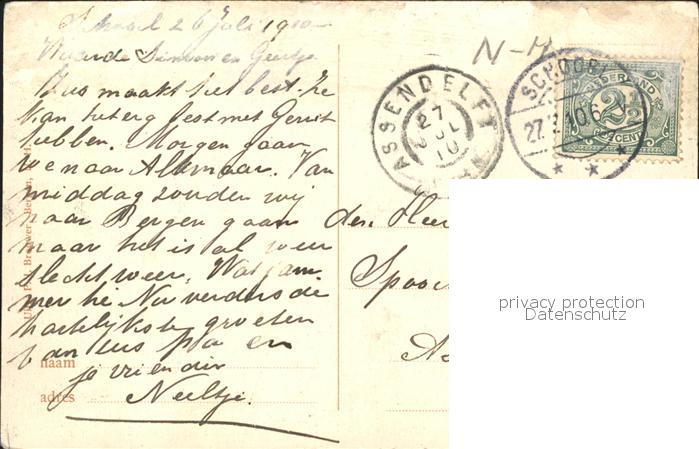 Schoorl 26 Juli 1910
Waarde Simon en Geertje.
Bus maakt het best. He
kan het erg best met Gerrit
hebben. Morgen gaan
we naar Alkmaar. Van
middag zouden wij
naar Bergen gaan
maar het is al weer
slecht weer. Wat jam-
mer hè. Nu verders de
hartelijkste groeten
van us pa en
je vriendin
Neeltje.
naam
adres
N-H
ASSENDELFT
27 JUL 10
SCHOORL
27. 10.6
NEDERLAND
2½
CENT
den Heer
Spoor
As
privacy protection
Datenschutz